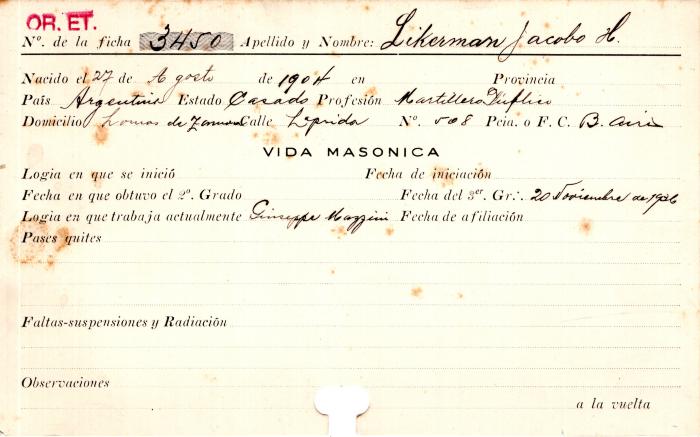 OR. ET.
Nº. de la ficha 3450 Apellido y Nombre: Likerman Jacobo H.
Nacido el 27 de Agosto de 1904 en Provincia
País Argentina Estado Casado Profesión Martillero Público
Domicilio Lomas de Zamora Calle Leprida Nº 508 Pcia. o F. C. B. Aires
VIDA MASONICA
Logia en que se inició Fecha de iniciación
Fecha en que obtuvo el 2º. Grado Fecha del 3er. Gr: 20 Noviembre de 1936
Logia en que trabaja actualmente Giuseppe Mazzini Fecha de afiliación
Pases quites
Faltas-suspensiones y Radiación
Observaciones
a la vuelta